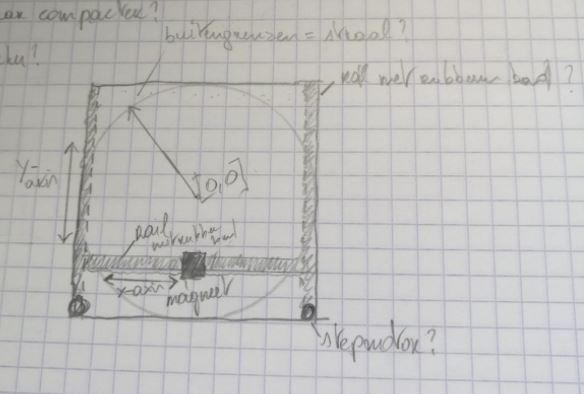 compacter?
buitengrenzen = staal?
rail met rubberen band?
y-axis
[0,0]
rail
met rubber band
x-axis
magneet